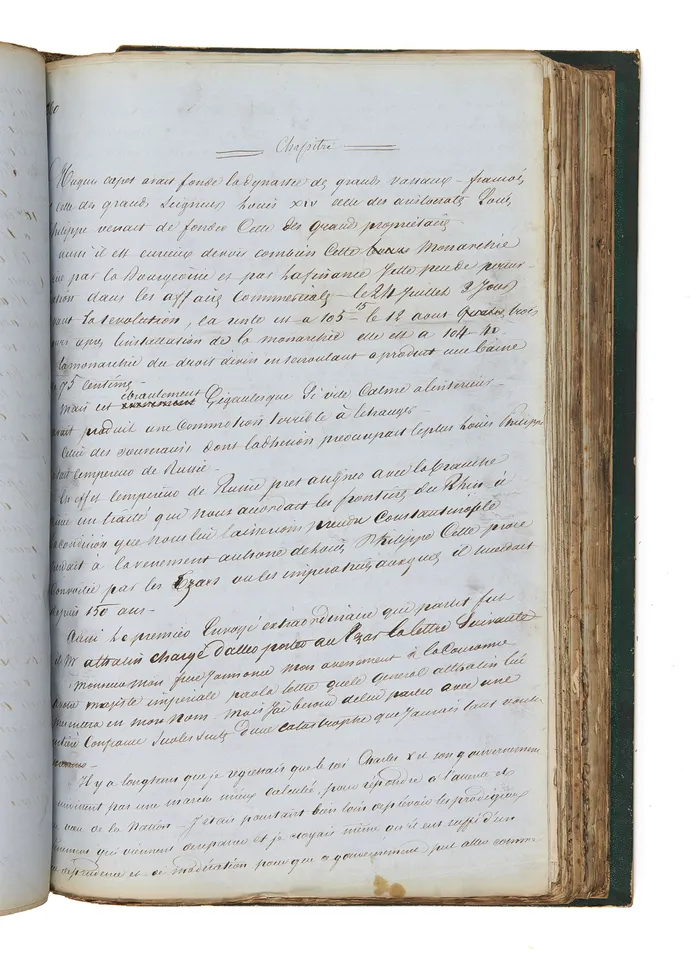 Chapitre
Hugue capet avait fondé la dynastie des grands vassaux – francois
celle des grands Seigneurs Louis XIV celle des aristocrates Louis
philippe venait de fonder Cette des grand proprietaires
aussi il est curieux de voir combien Cette Monarchie
par la Bourgeoisie et par la finance Jette peu de pertur-
bation dans les affaires Commerciales – le 24 Juillet 2 Jours
avant la revolution, la rente est a 105 – le 12 aout trois
jours apres l'installation de la monarchie elle est a 104
la monarchie du droit divin en secroulant a produit une baisse
75 centimes –
Mais cet ebranlement Gigantesque Si vite Calmé a linterieur –
avait produit une Commotion terrible à letranger –
Celui des souverains dont ladhesion preoccupait le plus Louis Philippe
etait lempereur de Russie –
En effet lempereur de Russie pret a signer avec la branche
un traité que nous accordait les frontieres du Rhin à
condition que nous lui laisserions prendre Constantinople
à lavenement au trone de Louis Philippe Cette proie
Convoitée par les Czars ou les imperatrices auxquels il succedait
depuis 150 ans –
Aussi Le premier Envoyé extraordinaire que partit fut
Mr athalin chargé d'aller porter au Czar la lettre Suivante
Monsieur Mon frere J'annonce mon avenement à la Couronne
majesté imperiale par la lettre que le general atthalin lui
en mon nom – Mais J'ai besoin de lui parler avec une
entière Confiance Sur les Suites d'une catastrophe que J'aurais tant voulu
Il y a longtems que je regrettais que le roi Charles X et son gouvernement
par une marche mieux calculée pour répondre a l'attente et
au vœu de la Nation – J'etais pourtant bien loin de prévoir les prodigieux
qui viennent de se passer et je croyais même qu'il eut suffi d'un
prudence et de modération pour que ce gouvernement put aller comme